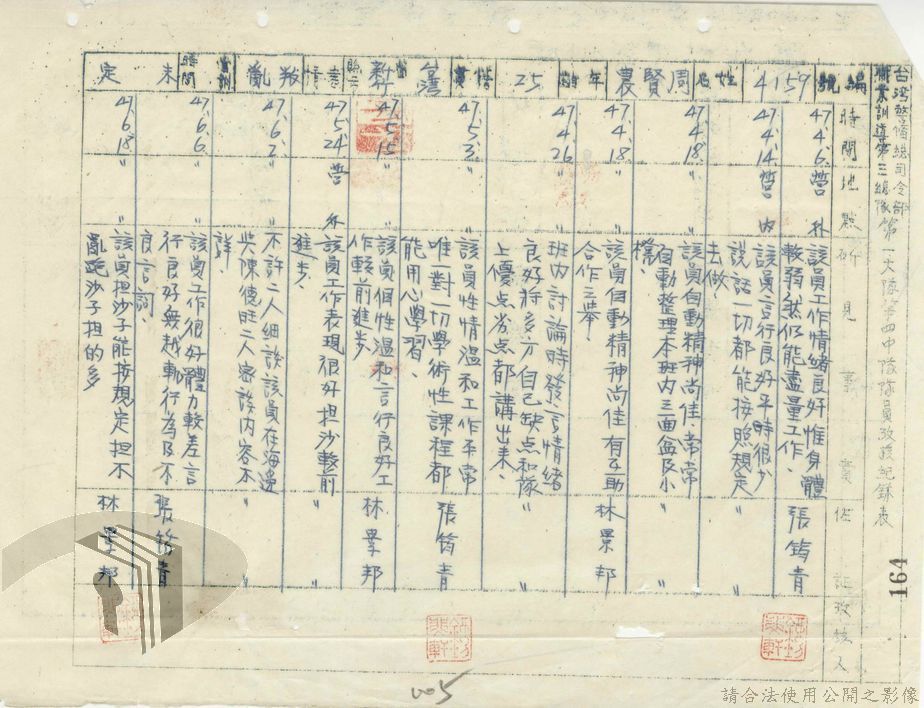 台灣警備總司令部職業訓導第三總隊第一大隊第四中隊隊員考核紀錄表
編號 4159 姓名 周賢農 年齡 25 籍貫 台灣新竹 案情 叛亂 管訓時間 未定
時間 地點 所見事實 佐証 考核人
47.4.6. 營外 該員工作情緒良好惟身體較弱然仍能盡量工作、 張筠青
47.4.14. 營內 該員言行良好平時很少說話一切都能按照規定去做、 〃
47.4.18. 〃 該員自動精神尚佳、常常自動整理本班內三面盆及小櫈、 〃
47.4.18. 〃 該員自動精神尚佳有互助合作之舉、 林景邦
47.4.26. 〃 班內討論時發言情緒良好將多分自己缺点和隊上優点劣点都講出來、 〃
47.5.3. 〃 該員性情温和工作平常唯對一切學術性課程都能用心學習、 張筠青
47.5.15. 〃 該員個性温和言行良好工作較前進步、 林景邦
47.5.24. 營外 該員工作表現很好担沙較前進步、 〃
47.6.2. 〃 不許二人細談該員在海邊些陳德旺二人密談內容不詳、 〃
47.6.6. 〃 該員工作很好體力較差言行良好無越軌行為及不良言詞、 張筠青
47.6.18. 〃 該員担沙子能按規定担不亂跑沙子担的多 林景邦
164
005
請合法使用公開之影像